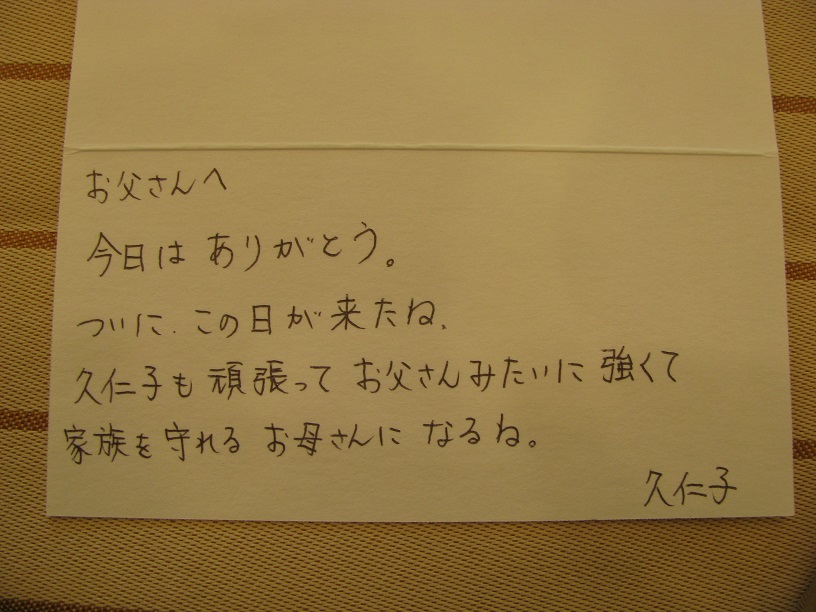 お父さんへ
今日は ありがとう。
ついに、この日が来たね。
久仁子も 頑張って お父さんみたいに 強くて
家族を守れる お母さんに なるね。
久仁子